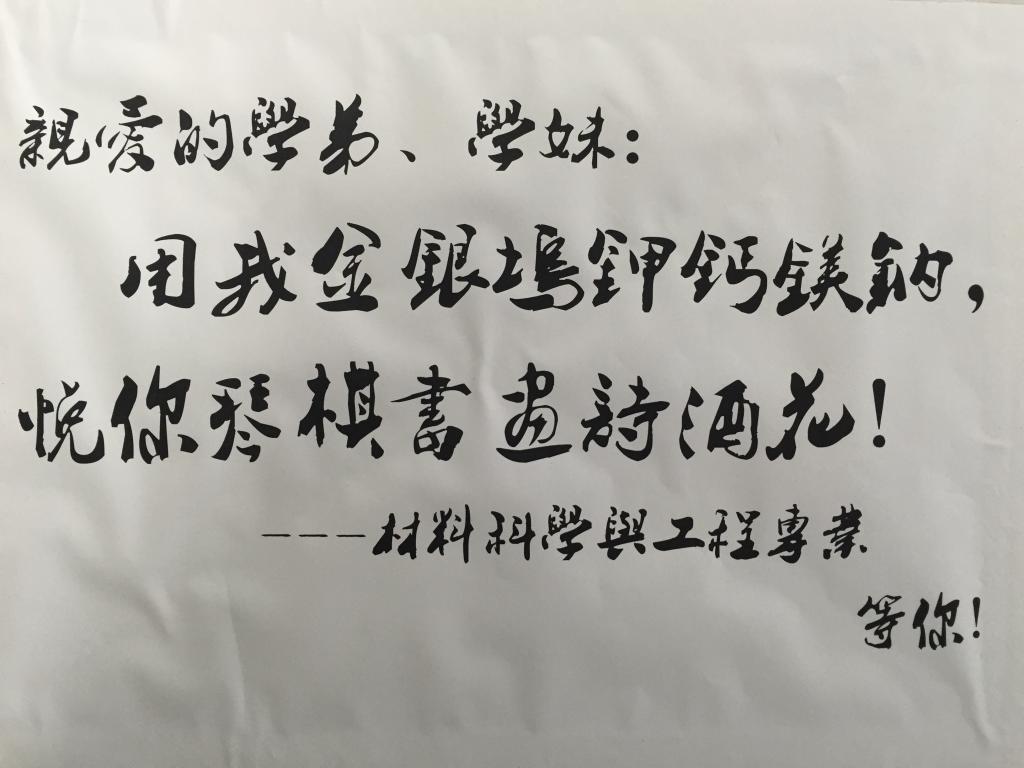 親愛的學弟、學妹:
用我金銀塢鉀鈣鎂鈉,
悅你琴棋書畫詩酒花!
---材料科學與工程專業
等你!